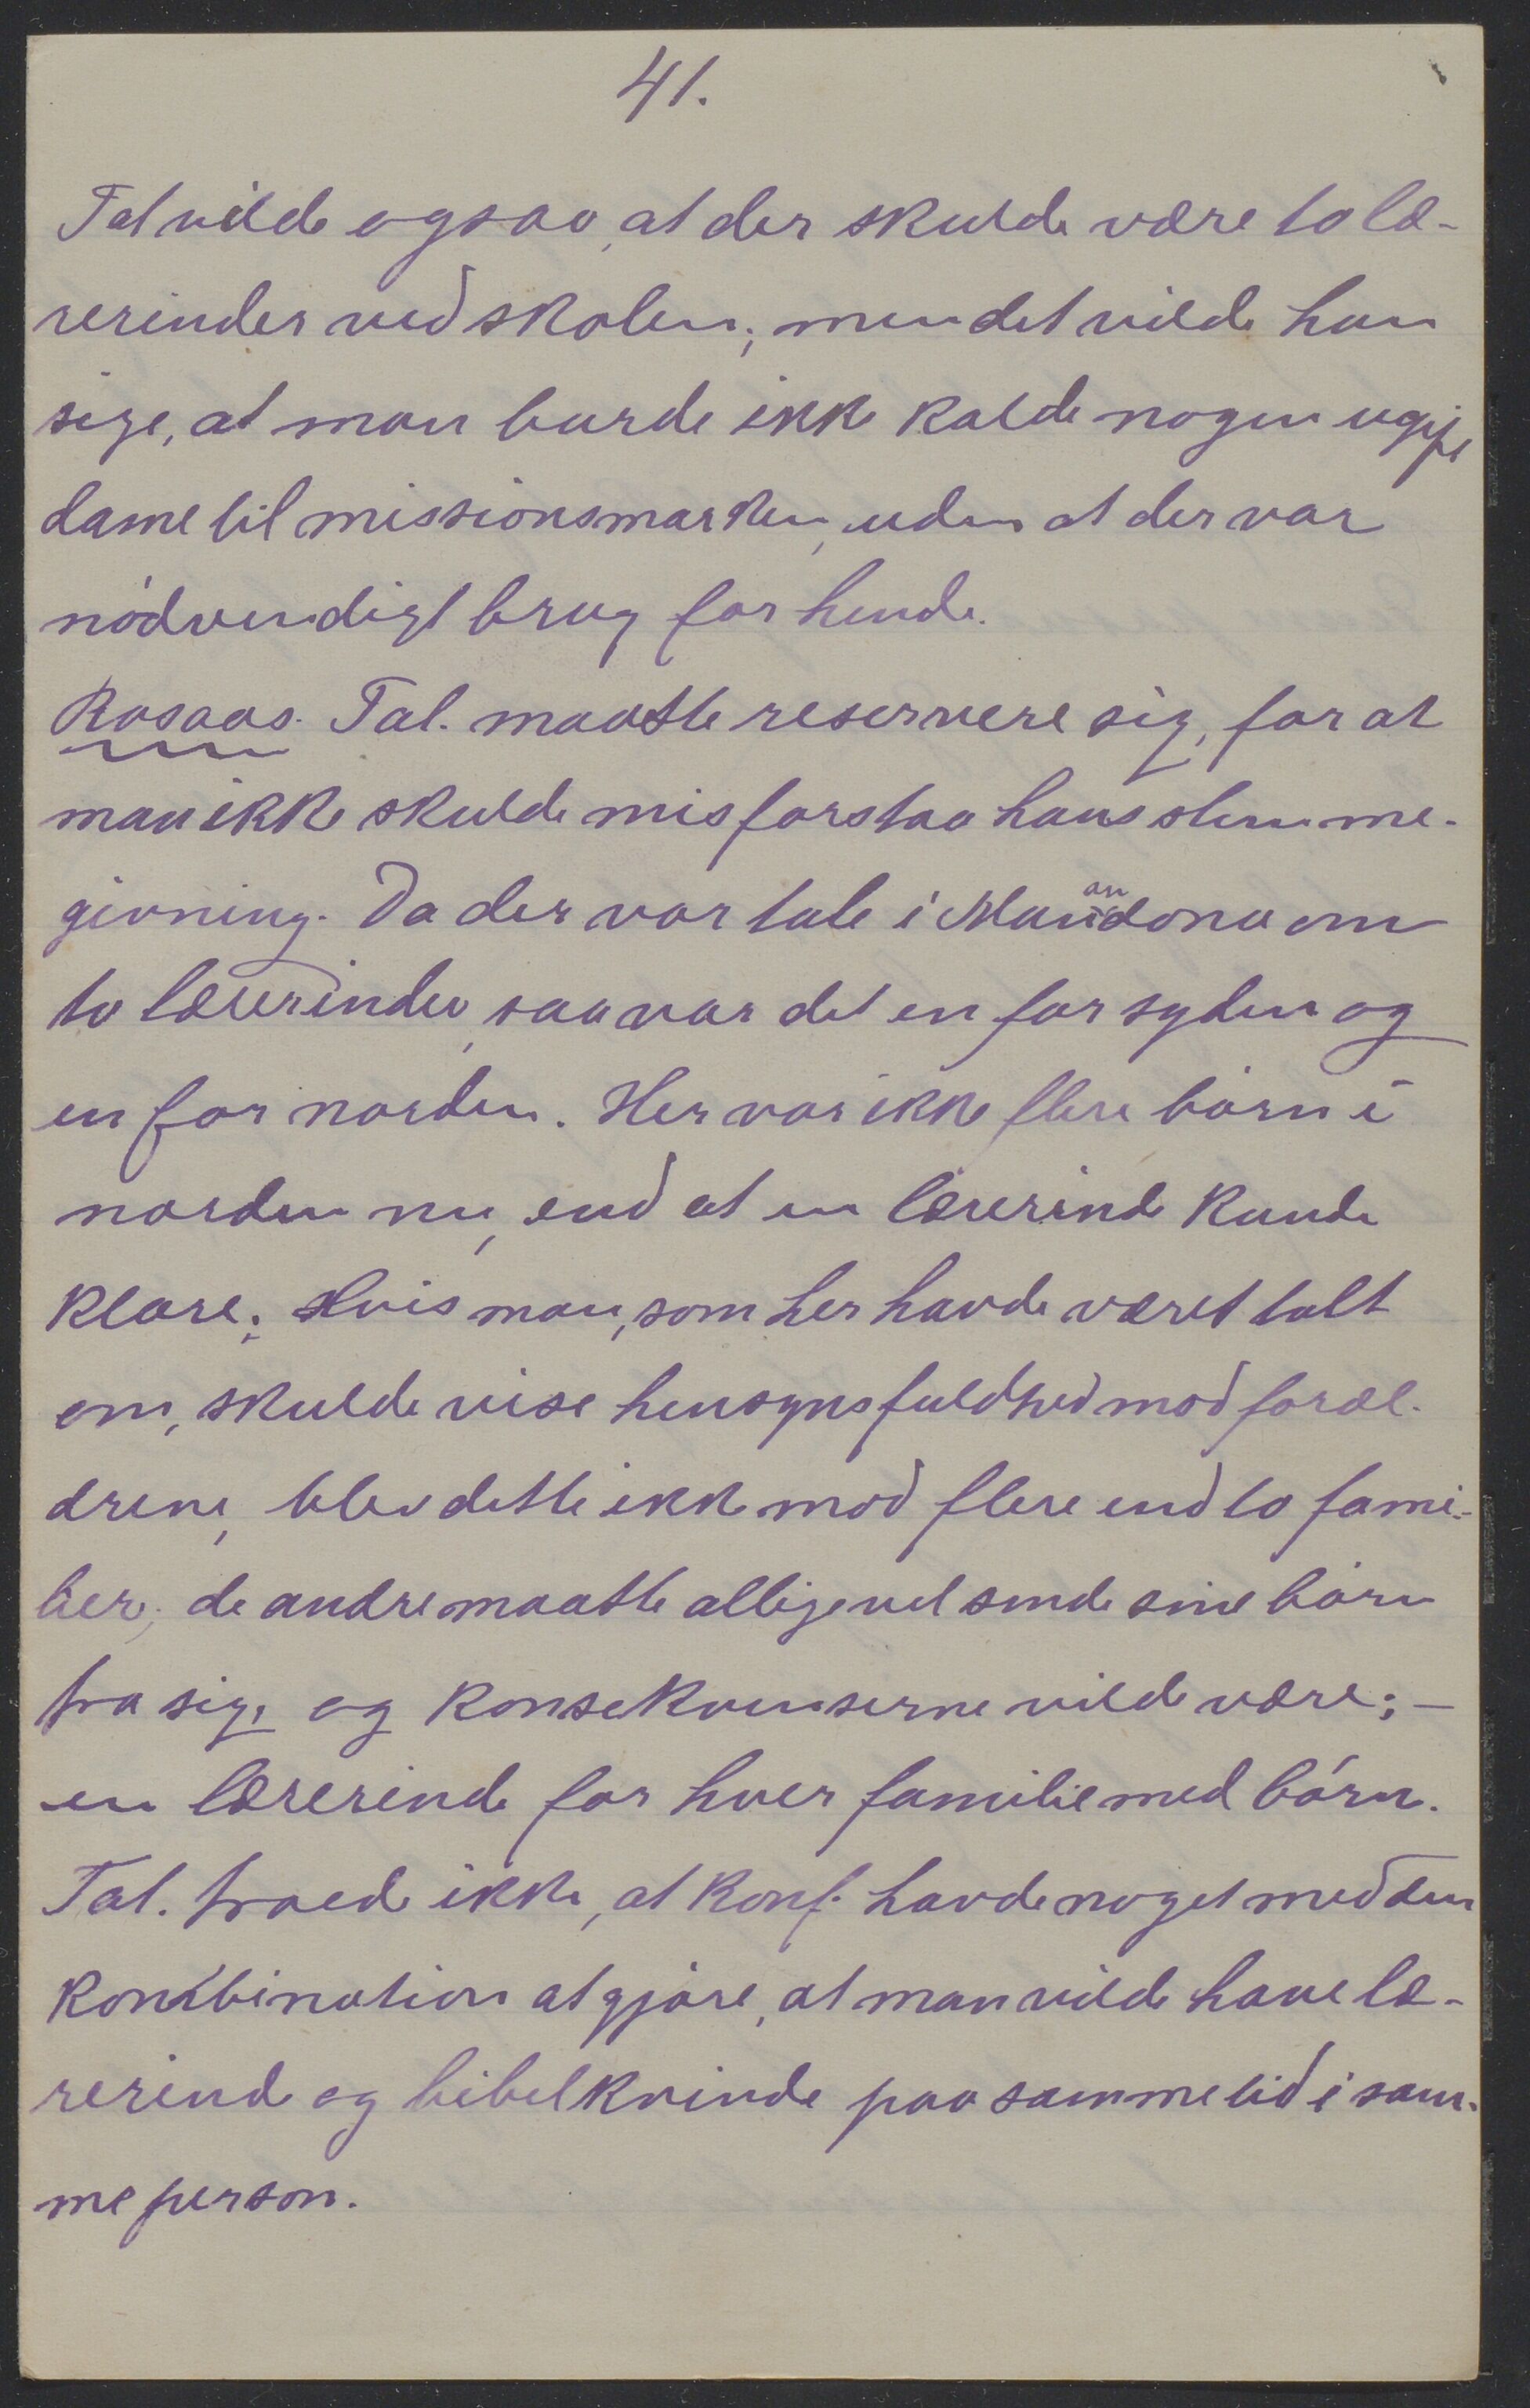 41.
Tal vilde ogsaa, at der skulde være to læ-
rerinder ved skolen; men det vilde han
sige, at man burde ikke kalde nogen ugift
dame til missionsmarken, uden at der var
nødvendigt brug for hende.
Rosaas. Tal. maatte reservere sig, for at
man ikke skulde misforstaa hans stemme-
givning. Da der var tale i Manandona om
to lærerinder, saa var det en for syden og
en for norden. Her var ikke flere børn i
norden nu, end at en lærerinde kunde
klare; Hvis man, som her havde været talt
om, skulde vise hensynsfuldhed mod foræl-
drene, blev dette ikke mod flere end to fami-
lier; de andre maatte alligevel sende sine børn
fra sig, og konsekvenserne vilde være; –
en lærerinde for hver familie med børn.
Tal. troede ikke, at konf. havde noget med den
kombination at gjøre, at man vilde have læ-
rerinde og bibelkvinde paa samme tid i sam-
me person.